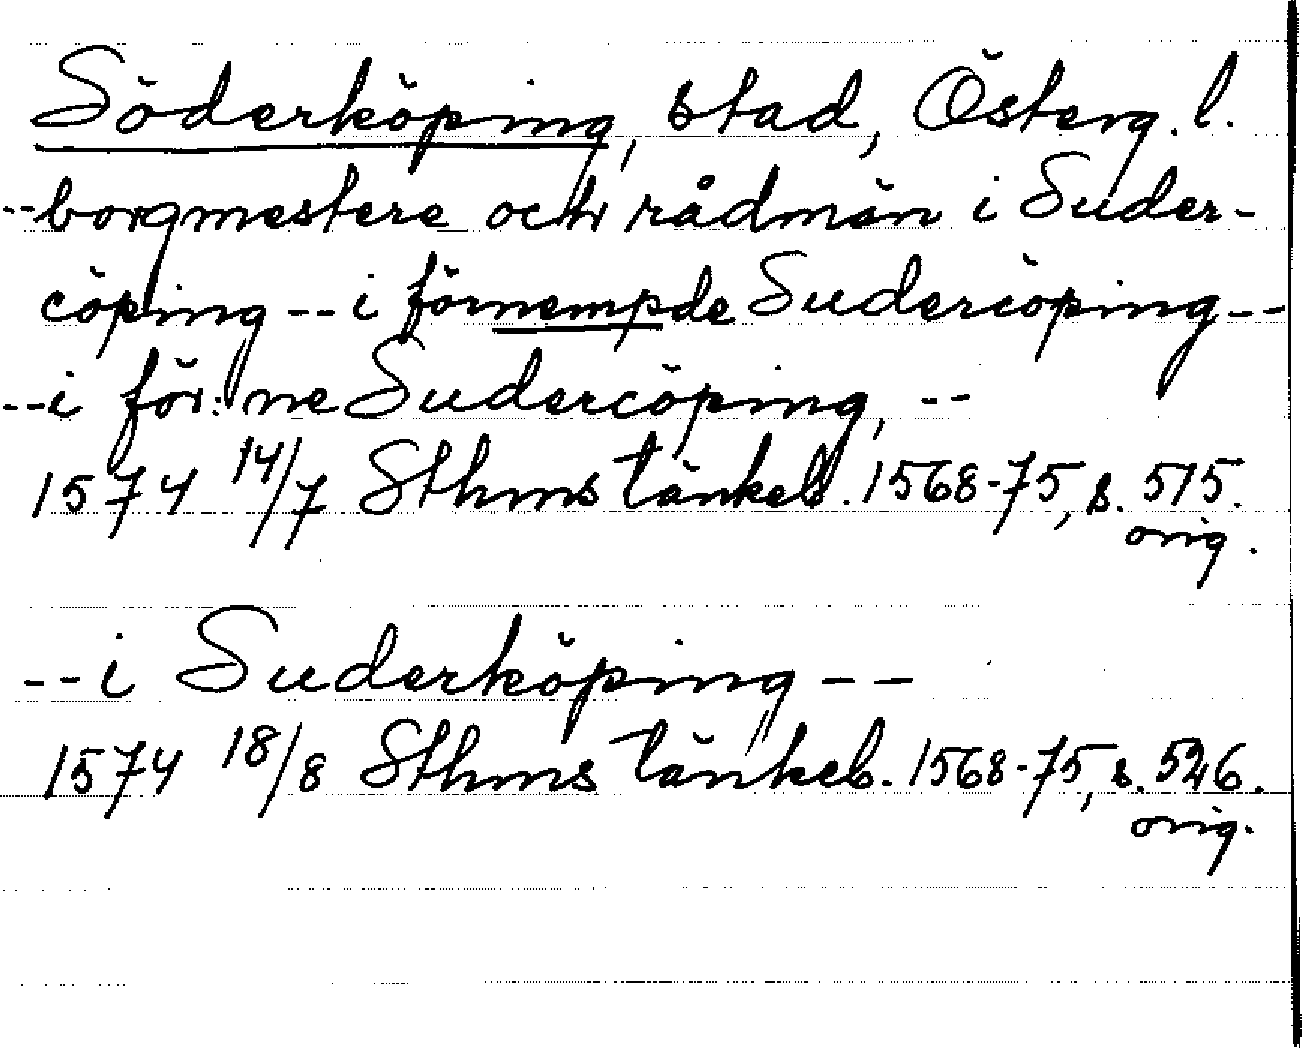 Söderköping, stad, Österg. l.
--borgmestere och rådmän i Suder-
cöping -- i förnempde Sudercöping --
--i för:ne Sudercöping, --
1574 14/7 Sthms tänkeb. 1568-75, s. 515.
orig.
--i Suderköping --
1574 18/8 Sthms tänkeb. 1568-75, s. 526.
orig.